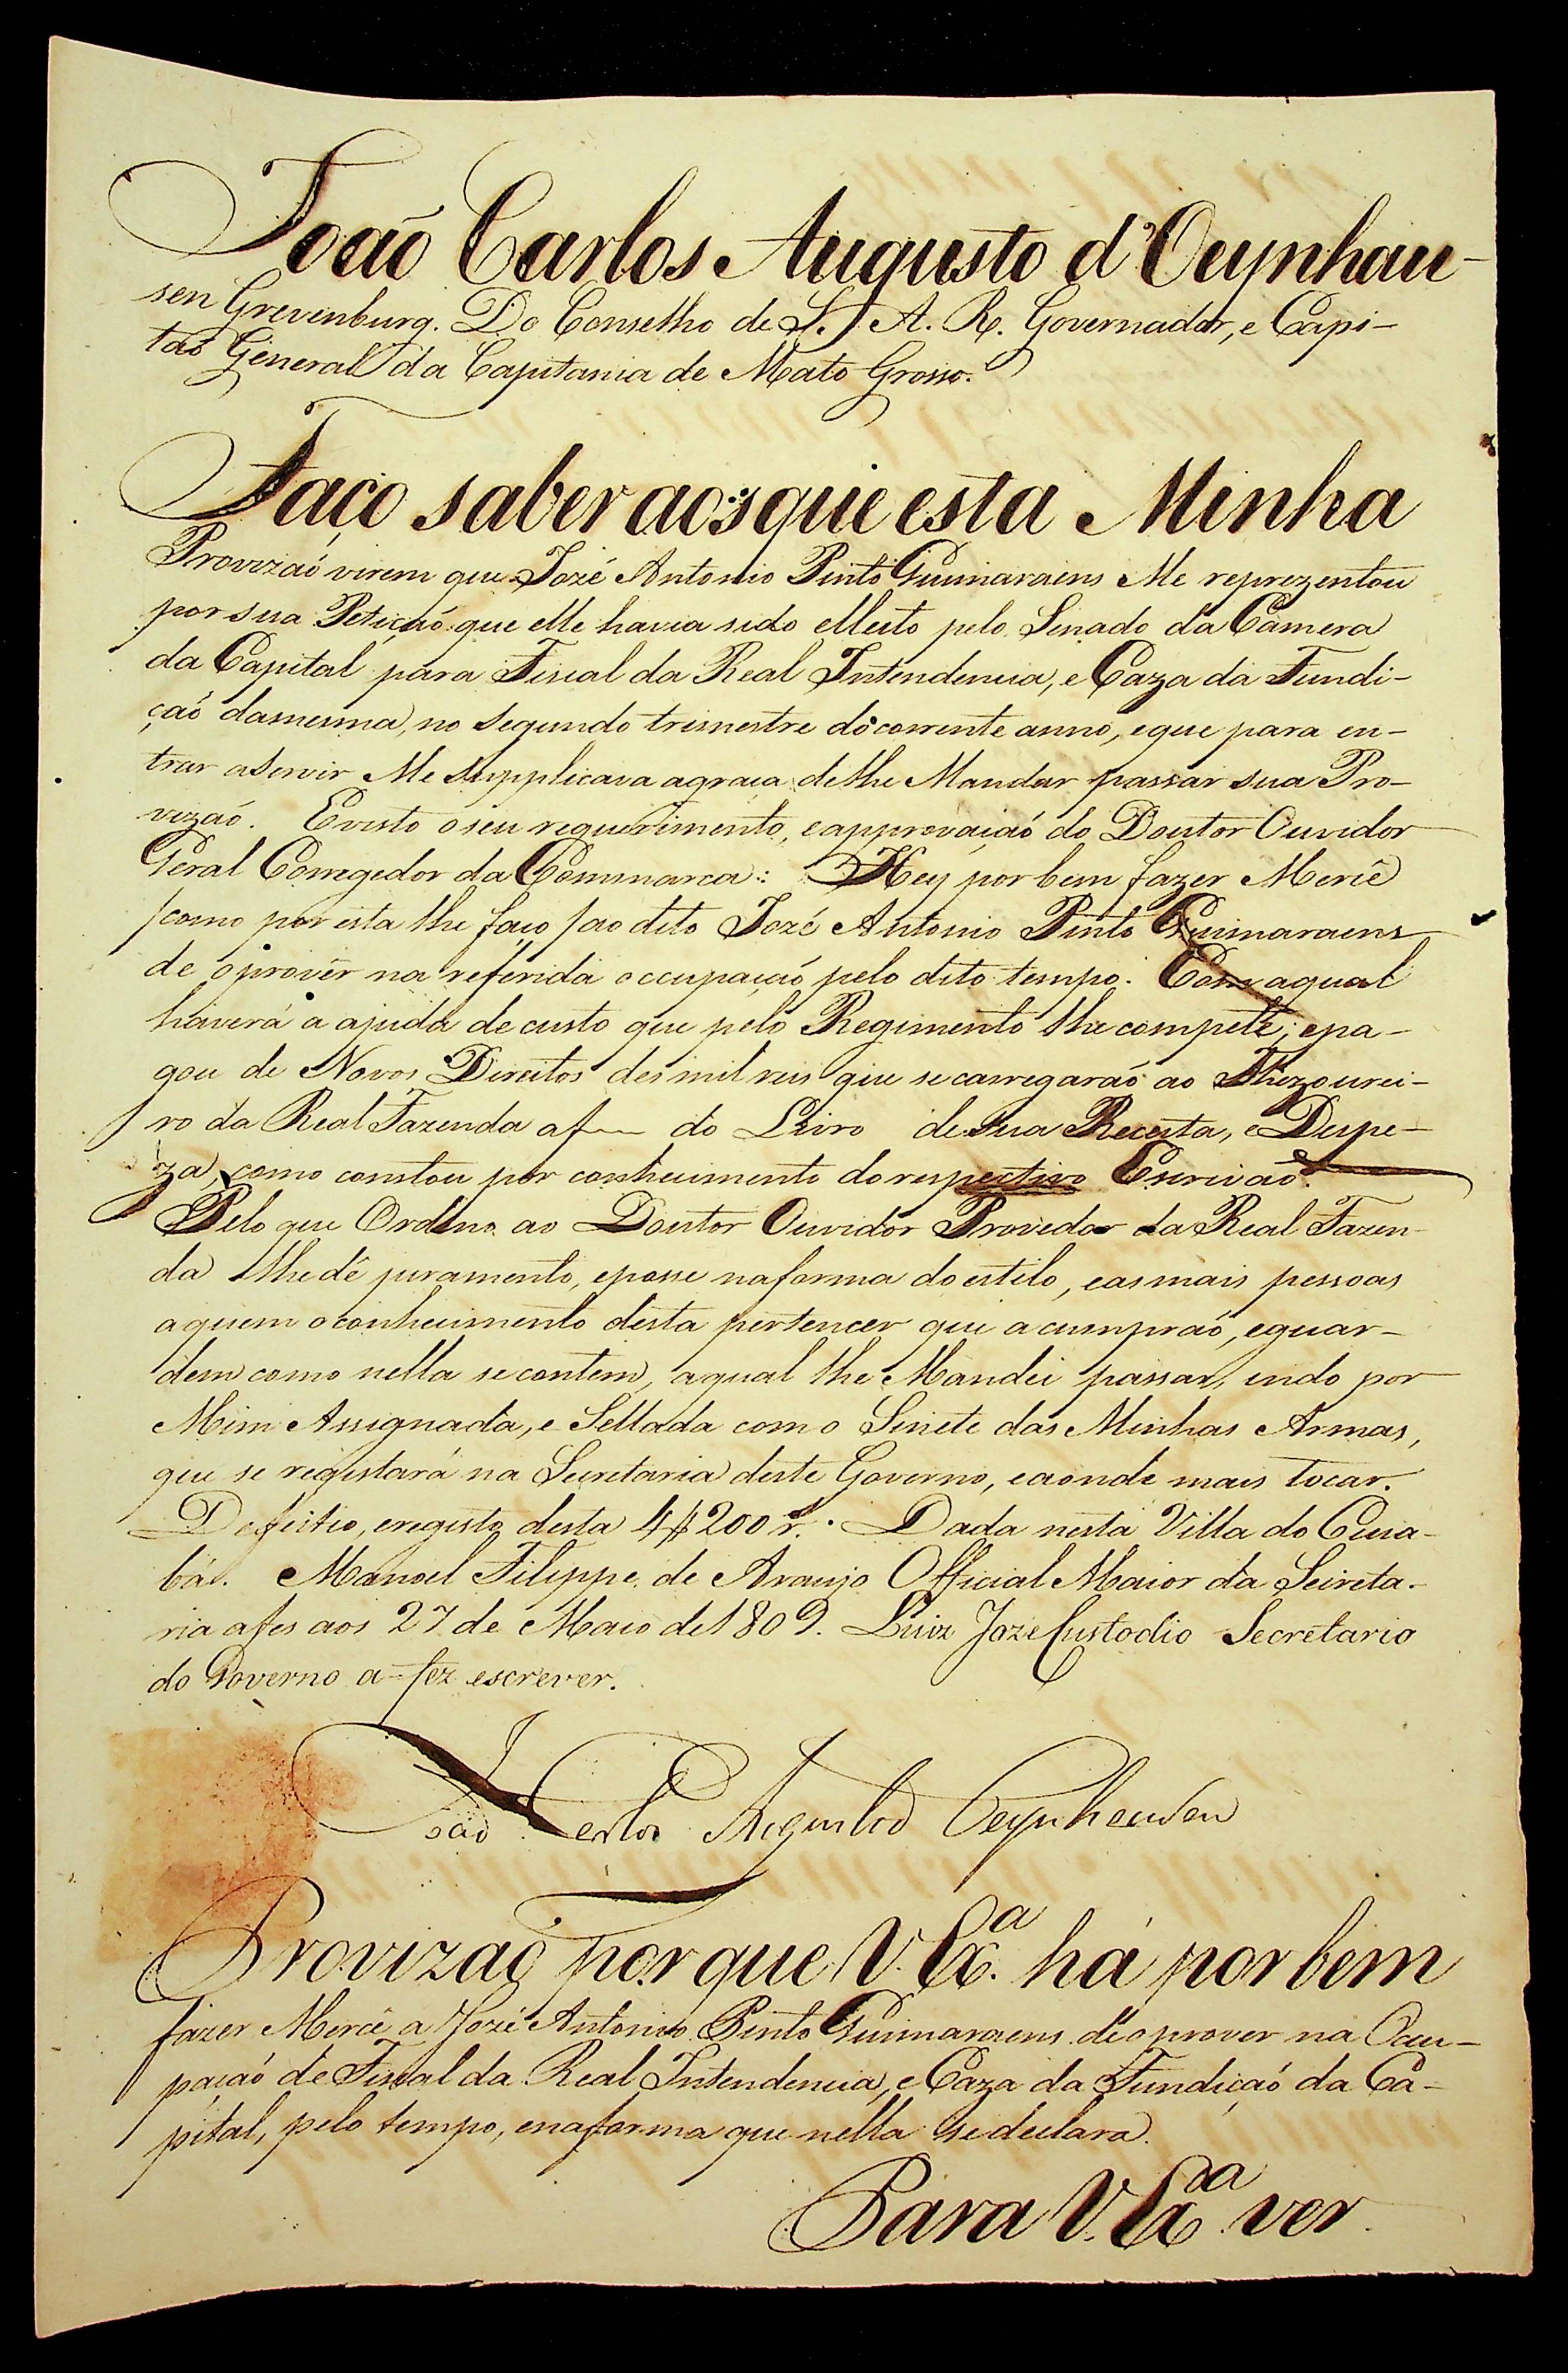 João Carlos Augusto d'Oeynhau-
sen Grevenburg. Do Conselho de S. A. R. Governador, e Capi-
tão General da Capitania de Mato Grosso.
Faço saber aos que esta Minha
Provizaõ virem que Jozé Antonio Pinto Guimaraens Me reprezentou
por sua Petiçaõ que elle havia sido elleito pelo Senado da Camera
da Capital para Fiscal da Real Intendencia, e Caza da Fundi-
çaõ da mesma, no segundo trimestre do corrente anno, e que para en-
trar a servir Me supplicava a graça de lhe Mandar passar sua Pro-
vizaõ. E visto o seu requerimento, e approvaçaõ do Doutor Ouvidor
Geral Corregedor da Commarca: Hey por bem fazer Mercê
/como por esta lhe faço/ ao dito Jozé Antonio Pinto Guimaraens
de o prover na referida occupaçaõ pelo dito tempo. Com a qual
haverá a ajuda de custo que pelo Regimento lhe compete; e pa-
gou de Novos Direitos des mil reis que se carregaraõ ao Thezourei-
ro da Real Fazenda a f do Livro de sua Receita, e Despe-
za, como constou por conhecimento do respectivo Escrivaõ.
Pelo que Ordeno ao Doutor Ouvidor Provedor da Real Fazen-
da lhe dê juramento, e posse na forma do estilo, e as mais pessoas
a quem o conhecimento desta pertencer que a cumpraõ, e guar-
dem como nella se contem, a qual lhe Mandei passar, indo por
Mim Assignada, e Sellada com o Sinete das Minhas Armas,
que se registará na Secretaria deste Governo, e aonde mais tocar.
De feitio, e registo desta 4$200 r.s Dada nesta Villa do Cuia-
bá. Manoel Filippe de Araujo Official Maior da Secreta-
ria a fes aos 27 de Maio de 1809. Luiz Joze Custodio Secretario
do Governo a fez escrever.
João Carlos Augusto d Oeynhausen
Provizaõ porque V. Ex.a há por bem
fazer Mercê a Jozé Antonio Pinto Guimaraens de o prover na Ocu-
paçaõ de Fiscal da Real Intendencia, e Caza da Fundiçaõ da Ca-
pital, pelo tempo, e na forma que nella se declara.
Para V. Ex.a ver.